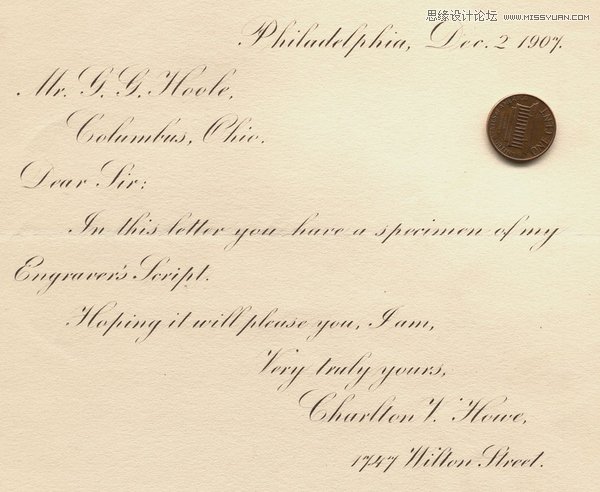 思缘设计论坛 WWW.MISSYUAN.COM
Philadelphia, Dec. 2 1907.
Mr. G. G. Hoole,
Columbus, Ohio.
Dear Sir:
ONE CENT
In this letter you have a specimen of my
Engraver's Script.
Hoping it will please you, I am,
Very truly yours,
Charlton V. Howe,
1747 Wilton Street.